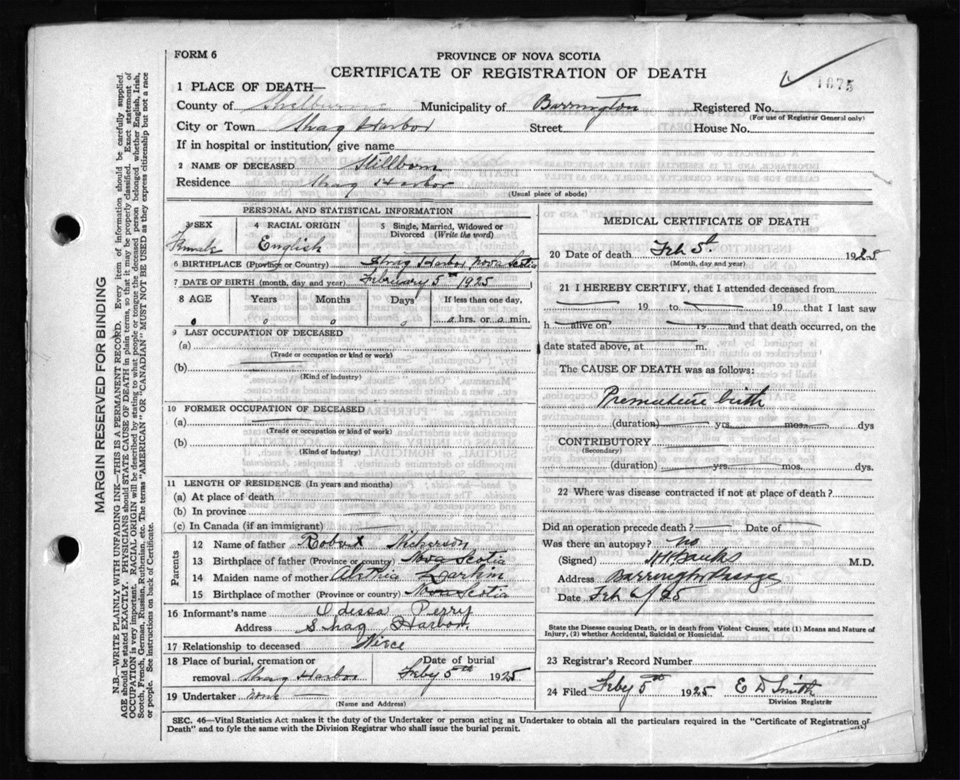 FORM 6
PROVINCE OF NOVA SCOTIA
CERTIFICATE OF REGISTRATION OF DEATH
1875
1 PLACE OF DEATH—
County of Shelburne Municipality of Barrington Registered No.
(For use of Registrar General only)
City or Town Shag Harbor Street House No.
If in hospital or institution, give name
2 NAME OF DECEASED Stillborn
Residence Shag Harbor
(Usual place of abode)
PERSONAL AND STATISTICAL INFORMATION
3 SEX 4 RACIAL ORIGIN 5 Single, Married, Widowed or Divorced (Write the word)
Female English
6 BIRTHPLACE (Province or Country) Shag Harbor Nova Scotia
7 DATE OF BIRTH (month, day and year) February 5th 1925
8 AGE Years Months Days If less than one day,
0 0 0 0 0 hrs. or 0 min.
9 LAST OCCUPATION OF DECEASED
(a)
(Trade or occupation or kind or work)
(b)
(Kind of industry)
10 FORMER OCCUPATION OF DECEASED
(a)
(Trade or occupation or kind or work)
(b)
(Kind of industry)
11 LENGTH OF RESIDENCE (In years and months)
(a) At place of death
(b) In province
(c) In Canada (if an immigrant)
Parents
12 Name of father Robert Nickerson
13 Birthplace of father (Province or country) Nova Scotia
14 Maiden name of mother Larkin
15 Birthplace of mother (Province or country) Nova Scotia
16 Informant's name Odessa Perry
Address Shag Harbor
17 Relationship to deceased Nurse
18 Place of burial, cremation or removal Shag Harbor Date of burial Feby 5th 1925
19 Undertaker none
(Name and Address)
MEDICAL CERTIFICATE OF DEATH
20 Date of death Feb 5th 1925
(Month, day and year)
21 I HEREBY CERTIFY, that I attended deceased from
19 to 19 that I last saw
h alive on 19 and that death occurred, on the
date stated above, at m.
The CAUSE OF DEATH was as follows:
Premature birth
(duration) yrs mos. dys
CONTRIBUTORY
(Secondary)
(duration) yrs mos. dys.
22 Where was disease contracted if not at place of death?
Did an operation precede death? Date of
Was there an autopsy? no
(Signed) H H Banks M.D.
Address Barrington Passage
Date Feb 6/25
State the Disease causing Death, or in death from Violent Causes, state (1) Means and Nature of Injury, (2) whether Accidental, Suicidal or Homicidal.
23 Registrar's Record Number
24 Filed Feby 5th 1925 E D Smith
Division Registrar
SEC. 46—Vital Statistics Act makes it the duty of the Undertaker or person acting as Undertaker to obtain all the particulars required in the "Certificate of Registration of
Death" and to fyle the same with the Division Registrar who shall issue the burial permit.
MARGIN RESERVED FOR BINDING
N.B.—WRITE PLAINLY WITH UNFADING INK—THIS IS A PERMANENT RECORD. Every item of information should be carefully supplied.
AGE should be stated EXACTLY. PHYSICIANS should STATE CAUSE OF DEATH in plain terms, so that it may be properly classified. Exact statement of
OCCUPATION is very important. RACIAL ORIGIN will be described by stating to what people or tongue the deceased person belonged whether English, Irish,
Scotch, French, German, Russian, Ruthenian, etc. The terms "AMERICAN" OR "CANADIAN" MUST NOT BE USED as they express citizenship but not a race
or people. See instructions on back of Certificate.